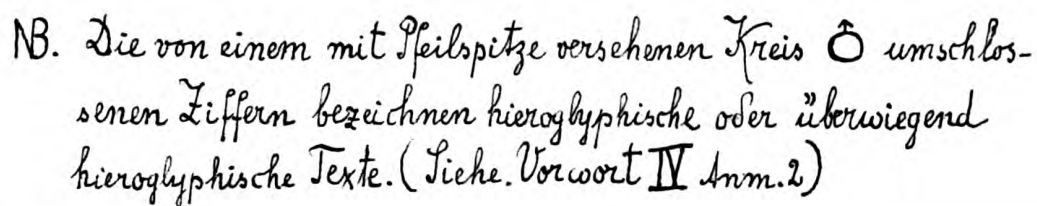 NB. Die von einem mit Pfeilspitze versehenen Kreis umschlos-
senen Ziffern bezeichnen hieroglyphische oder überwiegend
hieroglyphische Texte. (Siehe. Vorwort IV Anm. 2)